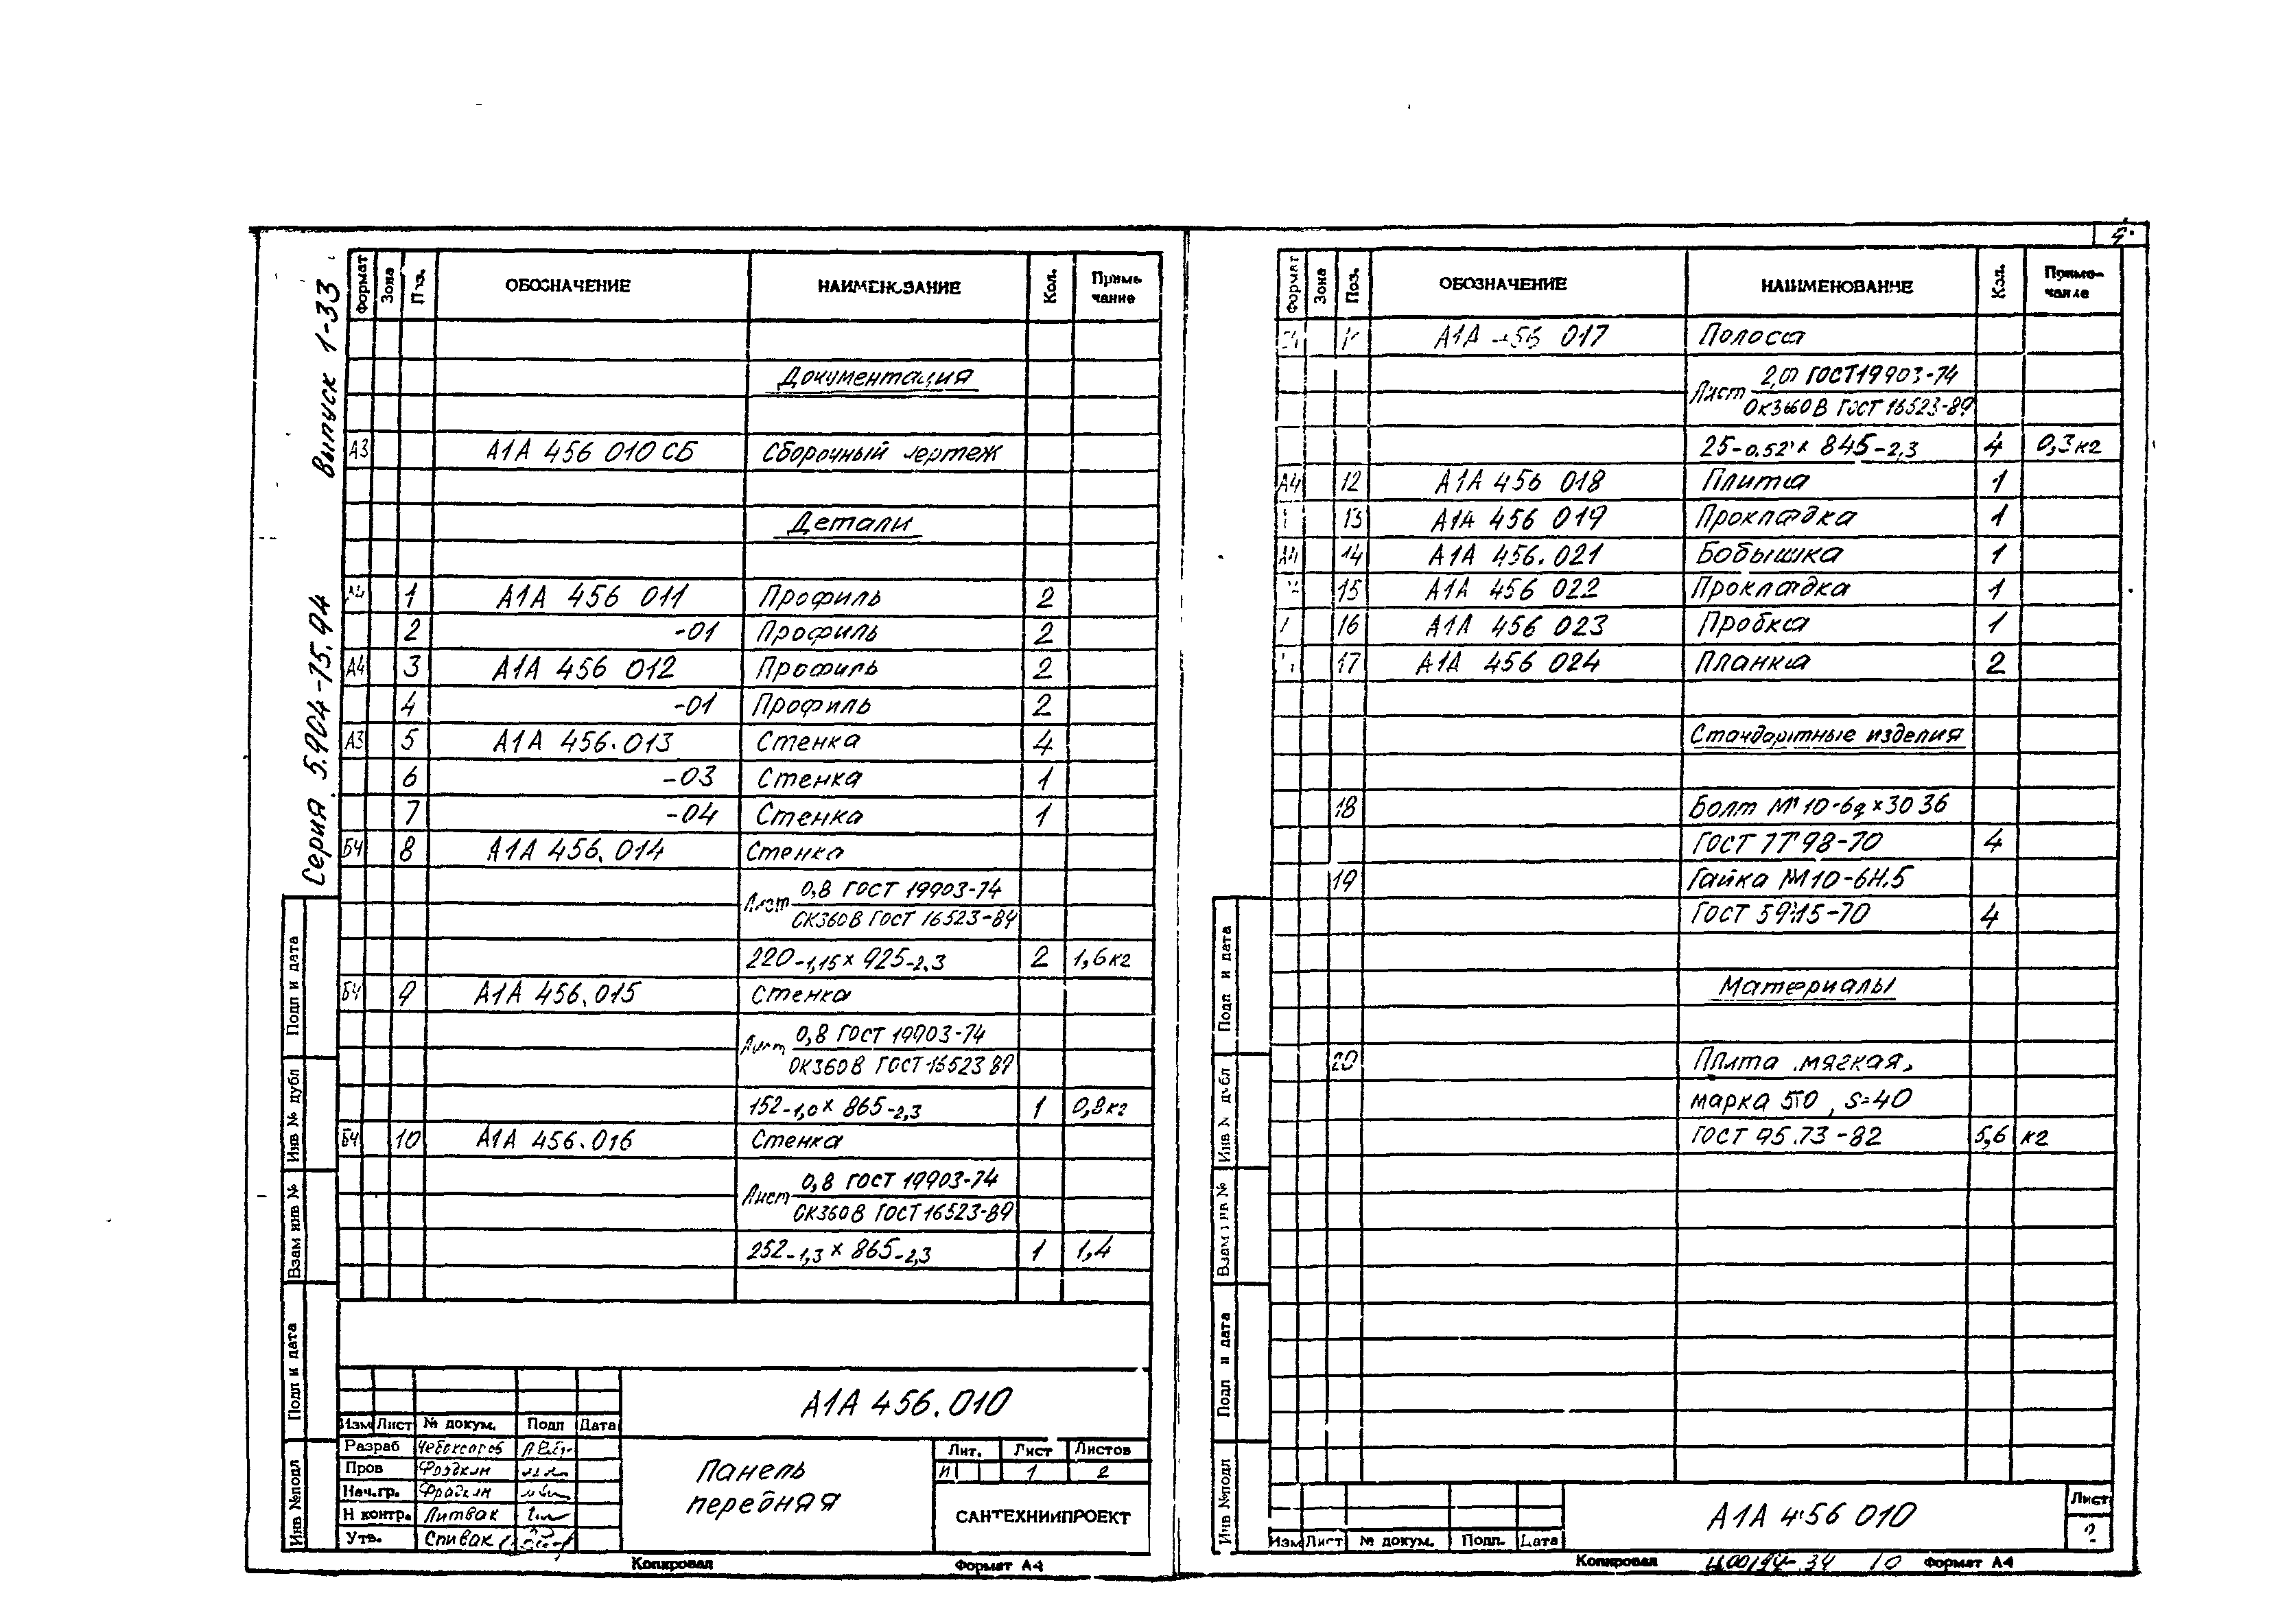 Серия 5.904-75.94 Выпуск 1-33
Формат Зона Поз. ОБОЗНАЧЕНИЕ НАИМЕНОВАНИЕ Кол. Приме-
чание
Документация
А3 А1А 456 010 СБ Сборочный чертеж
Детали
А4 1 А1А 456 011 Профиль 2
2 -01 Профиль 2
А4 3 А1А 456 012 Профиль 2
4 -01 Профиль 2
А3 5 А1А 456.013 Стенка 4
6 -03 Стенка 1
7 -04 Стенка 1
БЧ 8 А1А 456.014 Стенка
Лист 0,8 ГОСТ 19903-74
ОК360В ГОСТ 16523-89
220-1,15 × 925-2,3 2 1,6 кг
БЧ 9 А1А 456.015 Стенка
Лист 0,8 ГОСТ 19903-74
ОК360В ГОСТ 16523 89
152-1,0 × 865-2,3 1 0,8 кг
БЧ 10 А1А 456.016 Стенка
Лист 0,8 ГОСТ 19903-74
ОК360В ГОСТ 16523-89
252-1,3 × 865-2,3 1 1,4
Подп и дата
Инв № дубл
Взам инв №
Подп и дата
Инв №подл
А1А 456.010
Изм Лист № докум. Подп Дата
Разраб Чебоксаров
Пров Фрадкин
Нач.гр. Фрадкин
Н контр. Литвак
Утв. Спивак
Панель
передняя
Лит. Лист Листов
И 1 2
САНТЕХНИИПРОЕКТ
Копировал Формат А4
Формат Зона Поз. ОБОЗНАЧЕНИЕ НАИМЕНОВАНИЕ Кол. Приме-
чание
А1А 456 017 Полоса
Лист 2,0 ГОСТ 19903-74
ОК360В ГОСТ 16523-89
25-0.52 × 845-2,3 4 0,3 кг
А4 12 А1А 456 018 Плита 1
13 А1А 456 019 Прокладка 1
А4 14 А1А 456.021 Бобышка 1
15 А1А 456 022 Прокладка 1
16 А1А 456 023 Пробка 1
17 А1А 456 024 Планка 2
Стандартные изделия
18 Болт М10-6g×30 36
ГОСТ 7798-70 4
19 Гайка М10-6Н.5
ГОСТ 5915-70 4
Материалы
20 Плита мягкая,
марка 50, S=40
ГОСТ 9573-82 5,6 кг
Подп и дата
Инв № дубл
Взам инв №
Подп и дата
Инв №подл
Изм Лист № докум. Подп. Дата
А1А 456 010
Лист
2
Копировал Ц00194-34 10 Формат А4